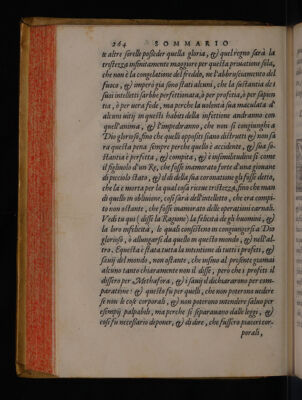 264 SOMMARIO
te altre sirelle posseder quella gloria, & quel regno sarà la
tristezza infinitamente maggiore per questa privatione sola,
che non è la congelatione del freddo, ne l'abbrusciamento del
fuoco, & imperò gia sono stati alcuni, che la sustantia de i
suoi intelletti sarebbe perfettionata, ò per profetia, ò per sapien
tia, ò per vera fede, ma perche la volentà sua maculata d'
alcuni vitij in questi habiti della infettione andranno con
quell'anima, & l'impediranno, che non si congiunghi a
Dio glorioso, fino che quelli oppositi siano distrutti & non sa
ra questa pena sempre perche quello è accidente, & sua so-
stantia è perfetta, & compita, & è in similitudine si come
il figliuolo d'un Re, che fosse inamorato forte d'una giovane
di picciolo stato, & il di della sua coronatione gli fosse detto,
che la è morta per la qual cosa riceve tristezza, fino che man
di quello in oblivione, cosi sarà dell'intelletto, che era compi-
to non ostante, che fosse inamorato delle operationi carnali.
Vedi tu qui (disse la Ragione) la felicità de gli huomini, &
la loro infelicità, le quali consistono in congiungersi a Dio
glorioso, ò allungarsi da quello in questo mondo, & nell'al-
tro. Equesta è stata tutta la intentione di tutti i profeti, &
savij del mondo, non ostante, che insino al presente giamai
alcuno tanto chiaramente non il disse, però che i profeti il
dissero per Methafora, & i savij il dichiararono per com-
paratione: & questo fu per quelli, che non poterono vedere
se non le cose corporali, & non poterono intendere salvo per
essempij palpabeli, ma perche si separavano dalle leggi, &
così fu necessario deponer, & di dire, che fussero piaceri cor-
porali,